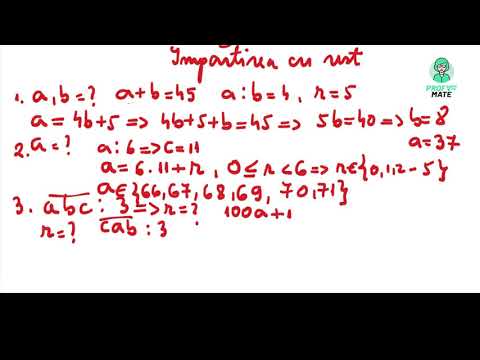 Impartirea cu rest
PROFYX
MATE
1. a, b = ? a + b = 45 a : b = 4, r = 5
a = 4b + 5 => 4b + 5 + b = 45 => 5b = 40 => b = 8
a = 37
2. a = ? a : 6 => C = 11
a = 6 . 11 + r, 0 ≤ r < 6 => r ∈ {0, 1, 2 - 5}
a ∈ {66, 67, 68, 69, 70, 71}
3. abc : 3 => r = ? 100a + 1
r = ? cab : 3